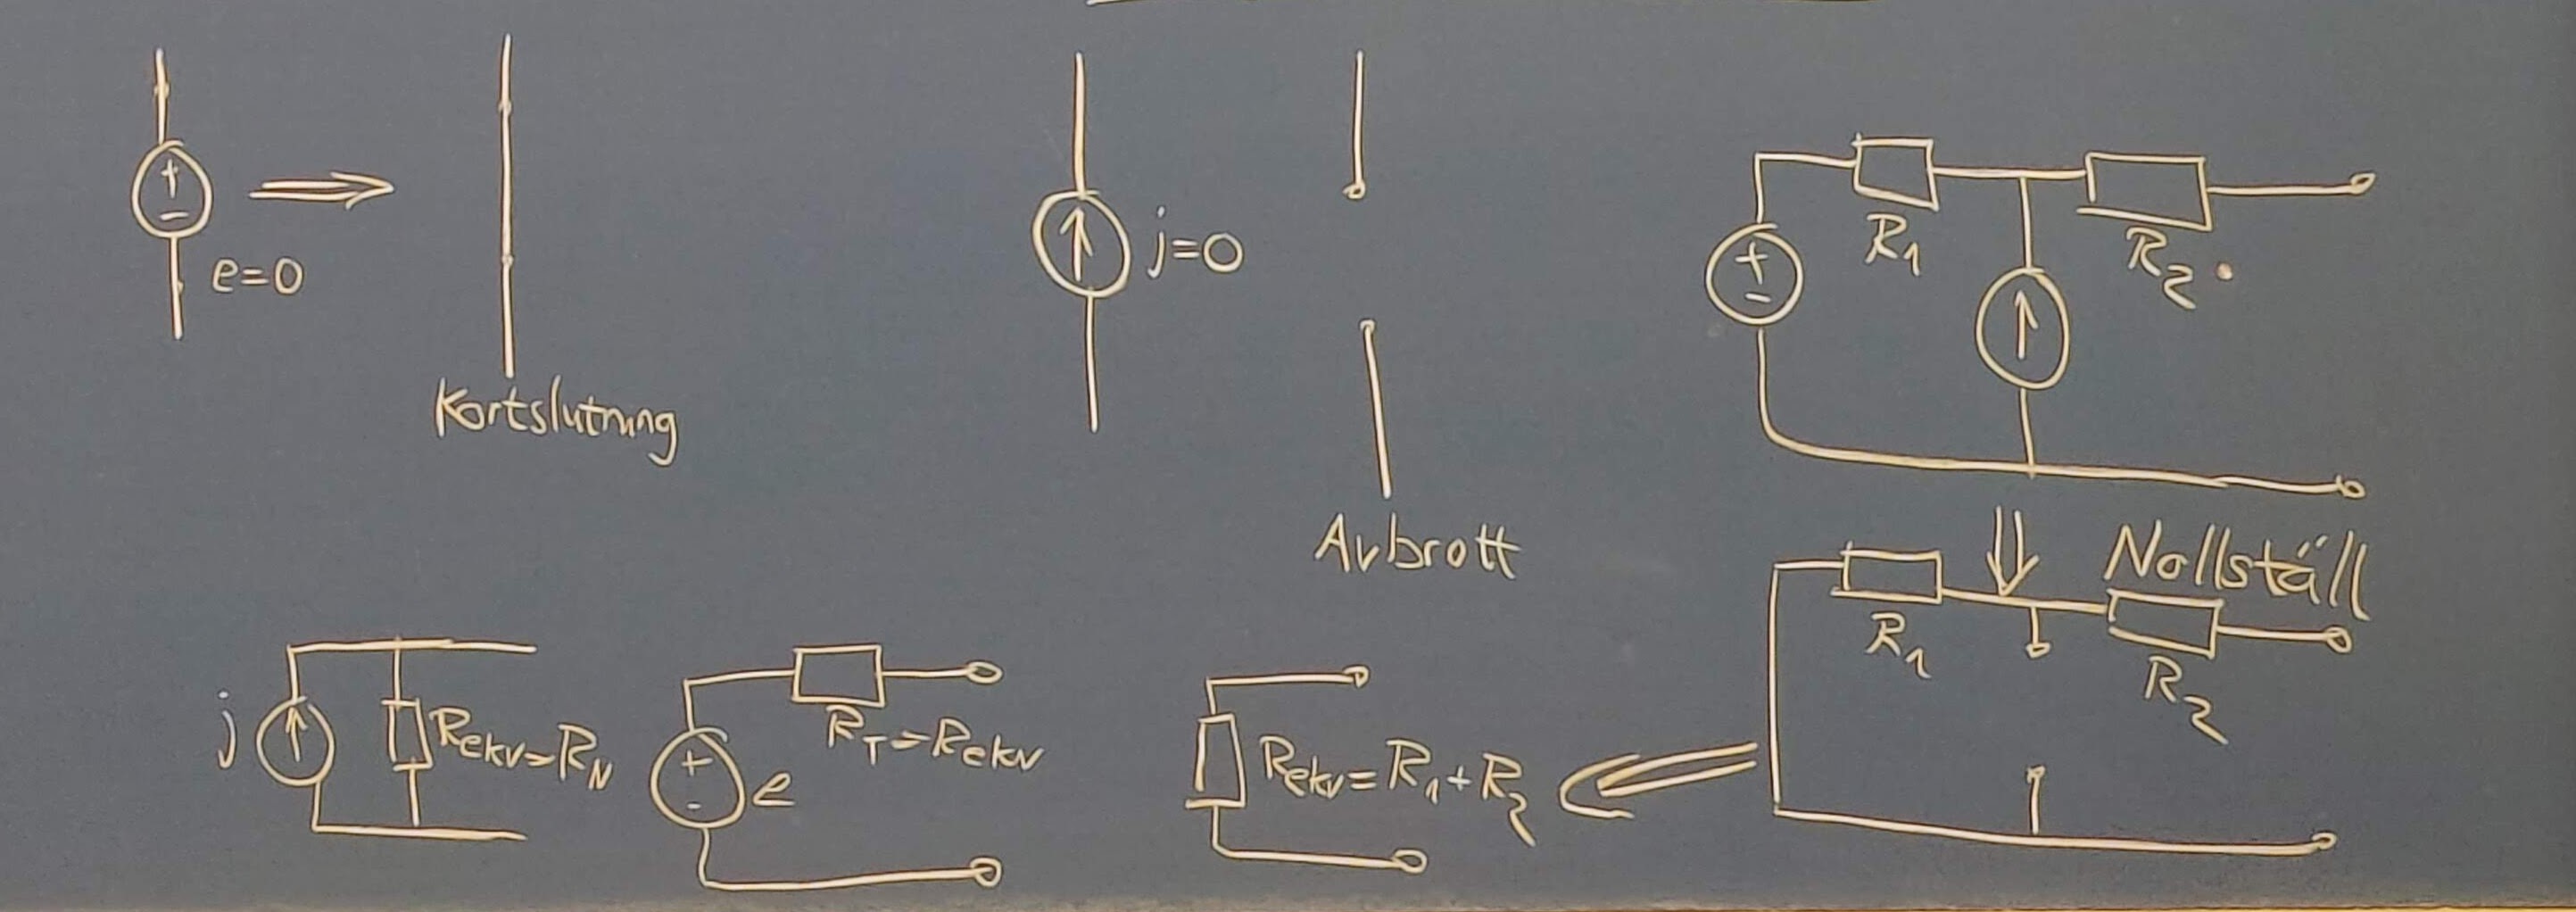 +
−
e=0
Kortslutning
j=0
Avbrott
+
−
R1
R2
Nollställ
R1
R2
j
Rekv=RN
+
-
e
RT=Rekv
Rekv=R1+R2